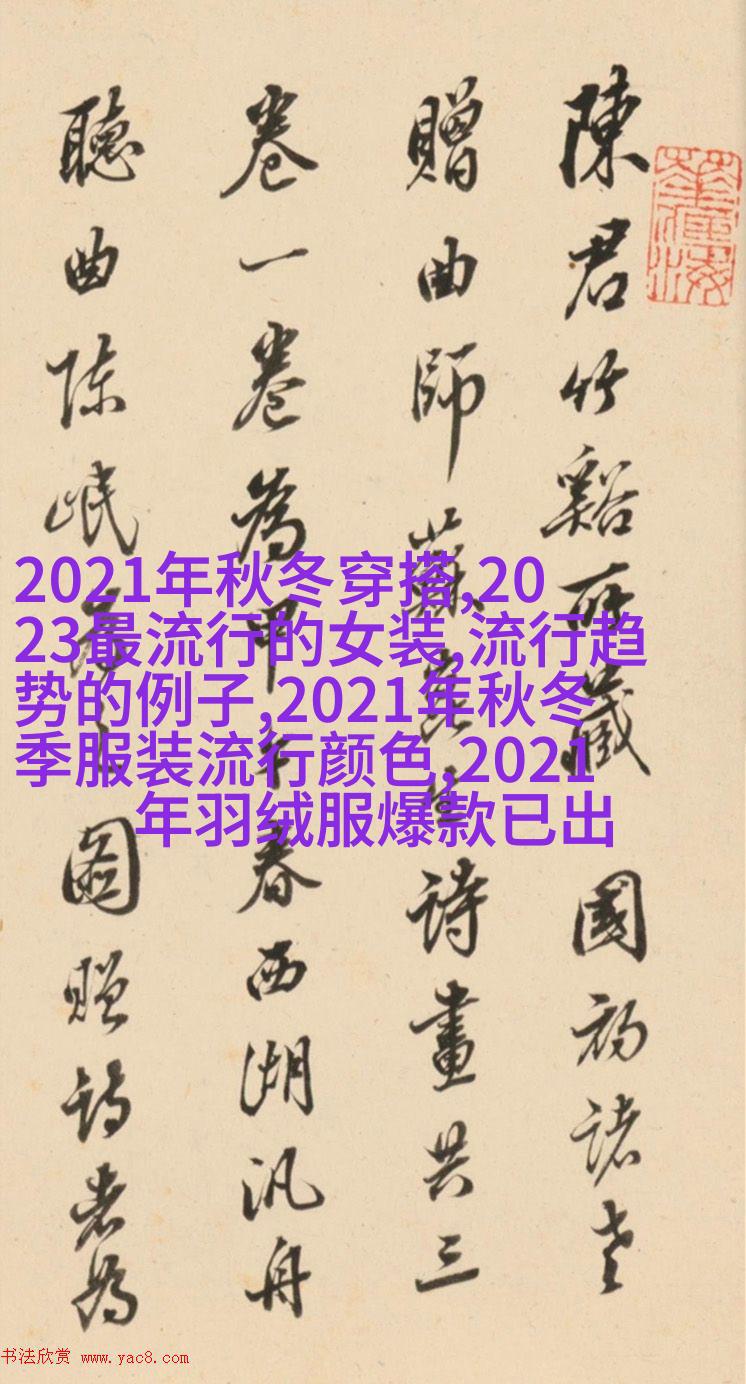 陳君竹谿所藏 國初諸老
贈曲師蘇崑生詩畫共三
卷一卷為甲午春西湖汎舟
聽曲陳岷 圖贈詩者為
2021年秋冬穿搭,20
23最流行的女装,流行趋
势的例子,2021年秋冬
季服装流行颜色,2021
年羽绒服爆款已出
书法欣赏 www.yac8.com